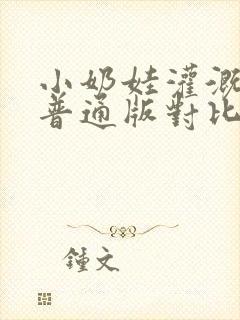 小奶娃灌溉
普通版對比
鍾文